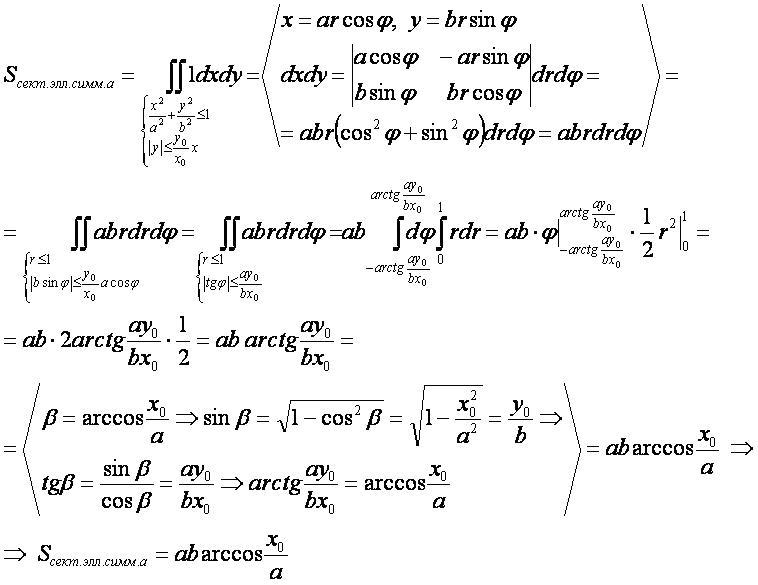 x = ar cos φ, y = br sin φ
S_{сект.элл.симм.a} = ∬_{{x²/a² + y²/b² ≤ 1, |y| ≤ (y₀/x₀)x} 1dxdy = ⟨ dxdy = |a cos φ  −ar sin φ; b sin φ  br cos φ| drdφ = ⟩ =
= abr(cos² φ + sin² φ)drdφ = abrdrdφ
= ∬_{{r ≤ 1, |b sin φ| ≤ (y₀/x₀) a cos φ} abrdrdφ = ∬_{{r ≤ 1, |tgφ| ≤ ay₀/bx₀} abrdrdφ = ab ∫_{−arctg ay₀/bx₀}^{arctg ay₀/bx₀} dφ ∫_0^1 rdr = ab · φ|_{−arctg ay₀/bx₀}^{arctg ay₀/bx₀} · 1/2 r²|_0^1 =
= ab · 2arctg ay₀/bx₀ · 1/2 = ab arctg ay₀/bx₀ =
β = arccos x₀/a ⇒ sin β = √(1 − cos² β) = √(1 − x₀²/a²) = y₀/b ⇒
= ⟨ tgβ = sin β/cos β = ay₀/bx₀ ⇒ arctg ay₀/bx₀ = arccos x₀/a ⟩ = ab arccos x₀/a ⇒
⇒ S_{сект.элл.симм.a} = ab arccos x₀/a